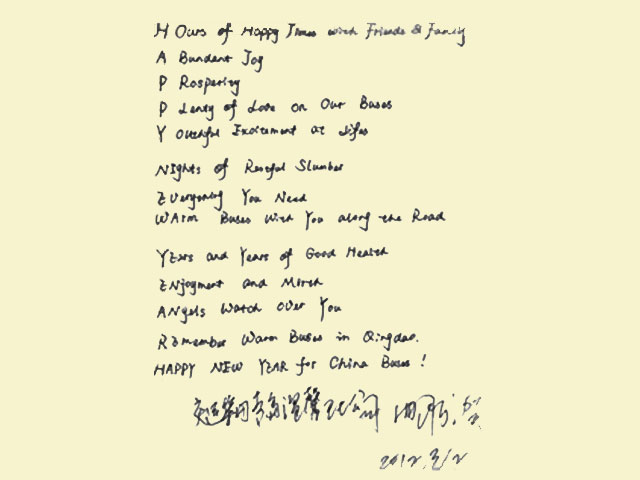 H Ours of Happy Times with Friends & Family
A Bundant Joy
P Rosperity
P Lenty of Love on Our Buses
Y Outhful Excitement at Lifes
NIghts of Restful Slumber
EVerything You Need
WArm Buses With You along the Road
YEars and Years of Good Health
ENjoyment and Mirth
ANgels Watch Over You
REmember Warm Buses in Qingdao.
HAPPY NEW YEAR for China Buses !
青岛温馨巴士